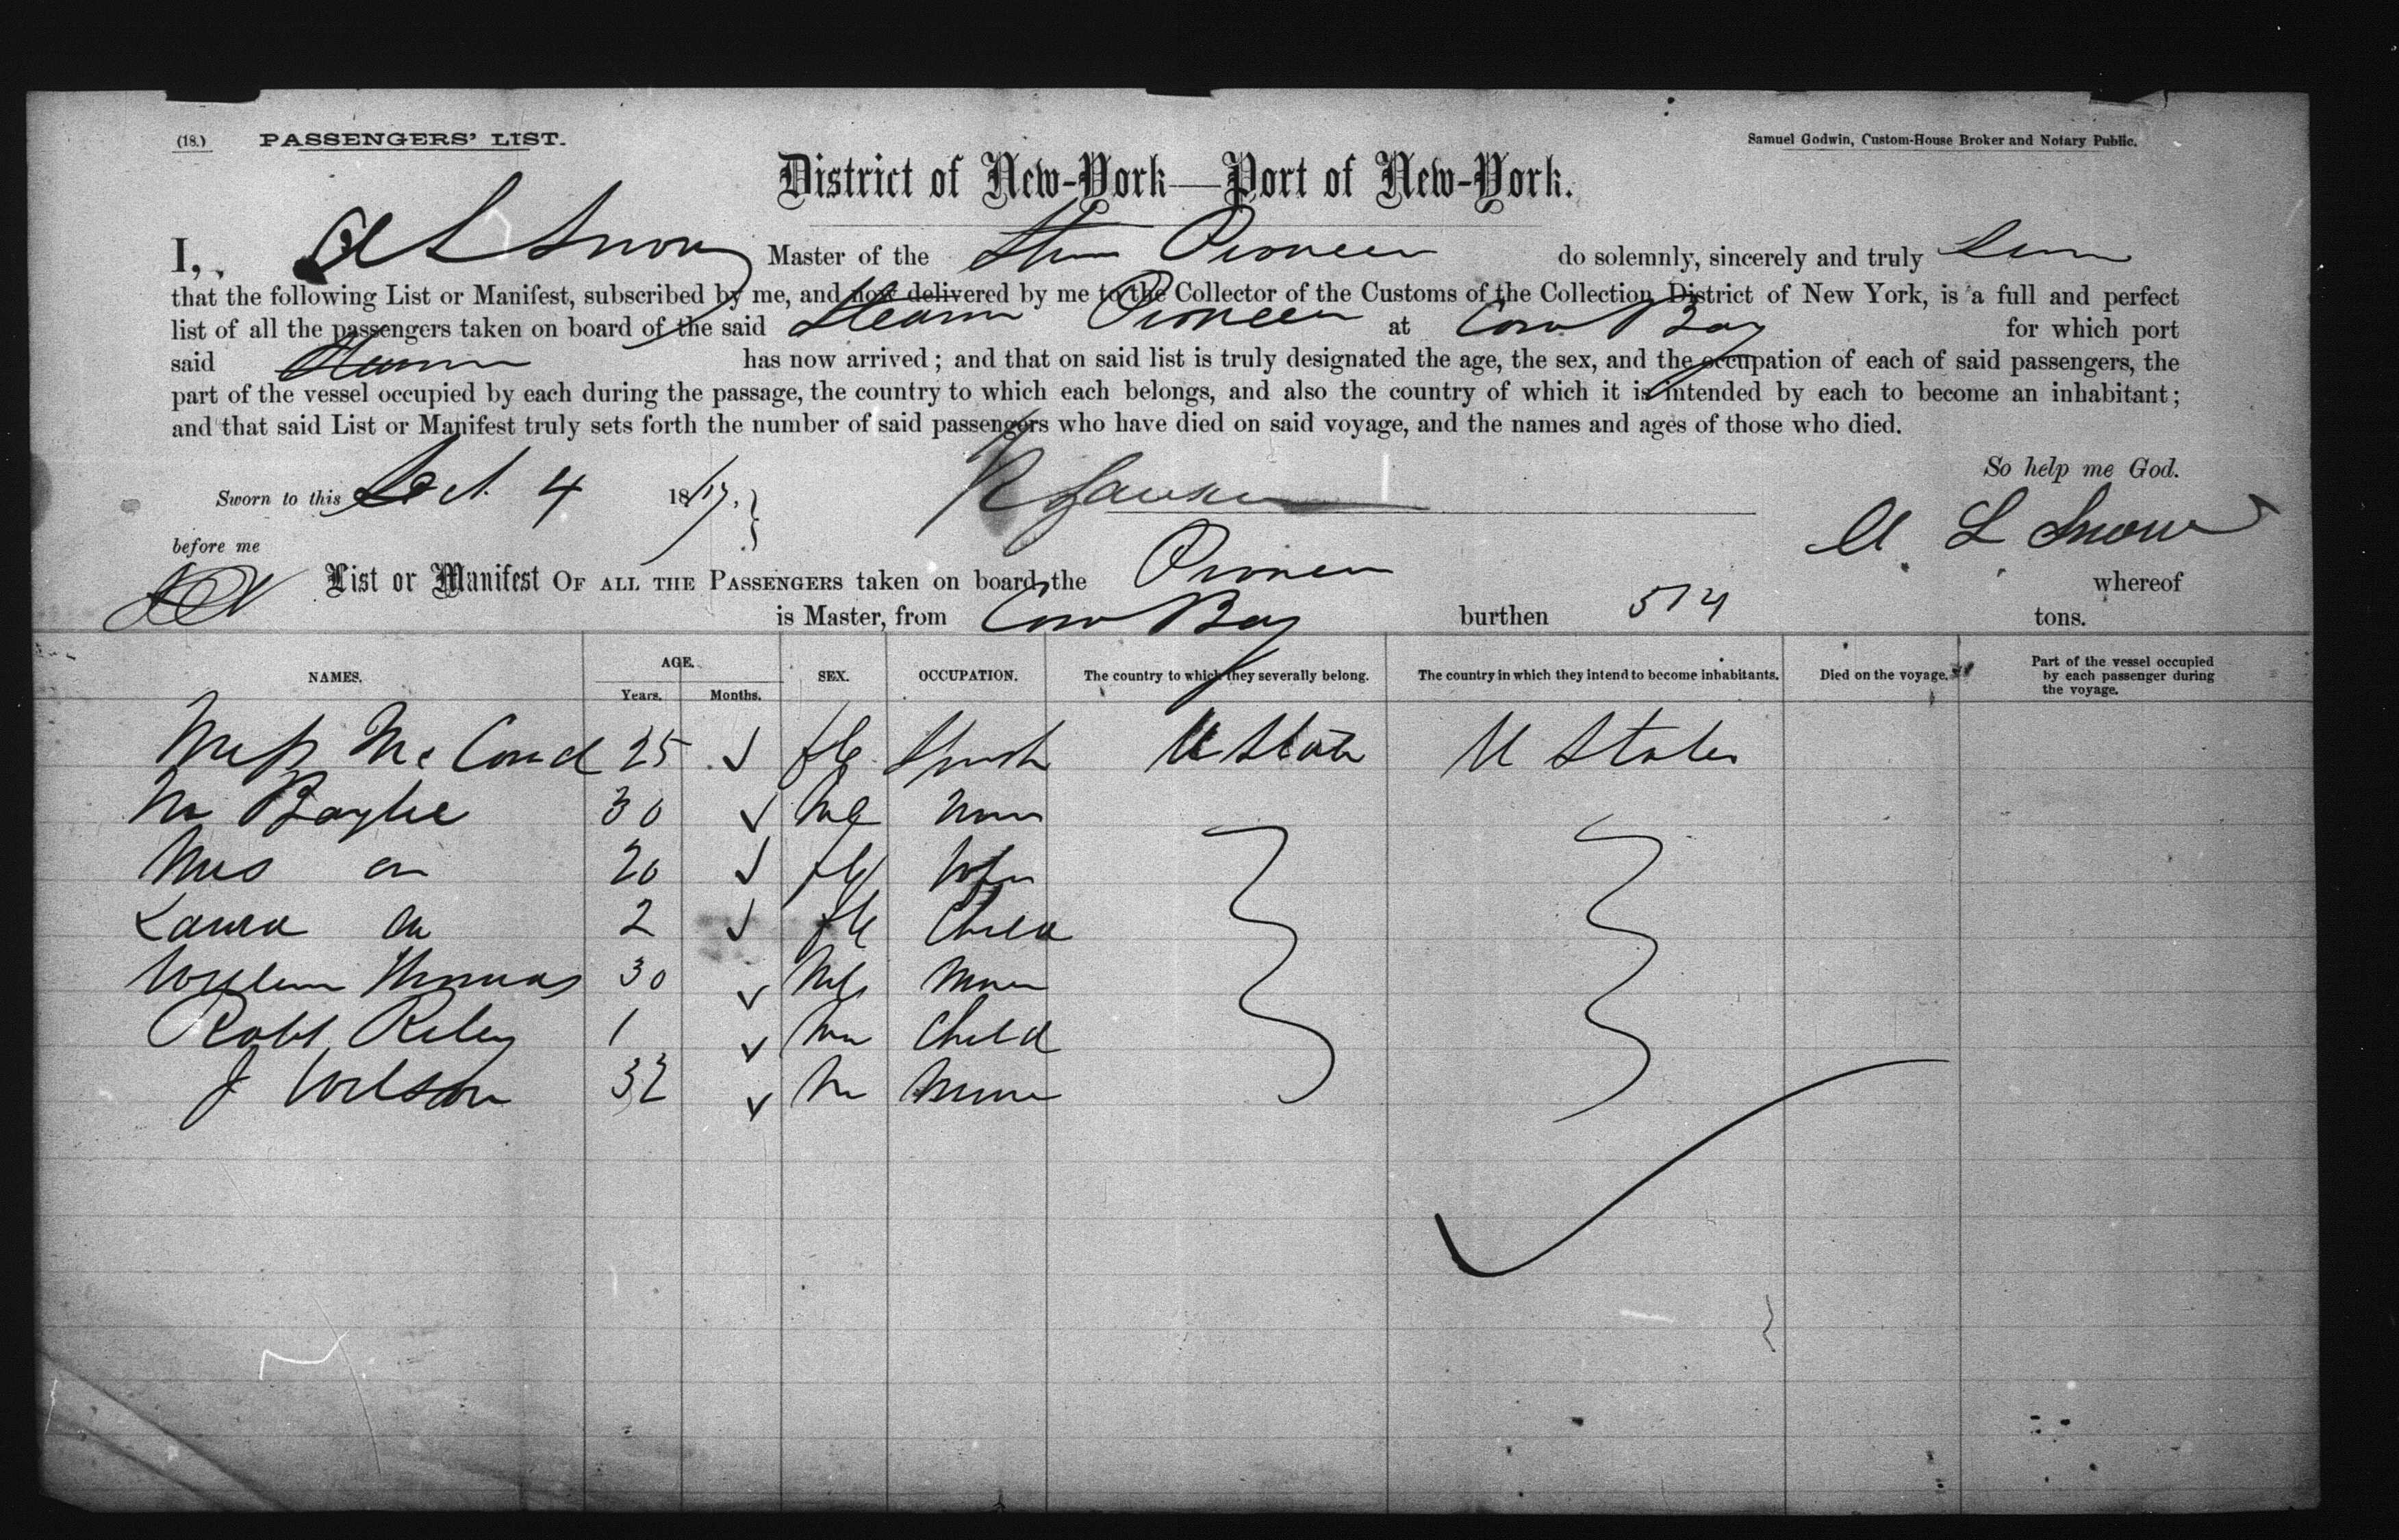 (18.) PASSENGERS' LIST.
Samuel Godwin, Custom-House Broker and Notary Public.
District of New-York—Port of New-York.
I, A L Snow Master of the Pioneer do solemnly, sincerely and truly
that the following List or Manifest, subscribed by me, and now delivered by me to the Collector of the Customs of the Collection District of New York, is a full and perfect
list of all the passengers taken on board of the said Steamer Pioneer at Cow Bay for which port
said Steamer has now arrived; and that on said list is truly designated the age, the sex, and the occupation of each of said passengers, the
part of the vessel occupied by each during the passage, the country to which each belongs, and also the country of which it is intended by each to become an inhabitant;
and that said List or Manifest truly sets forth the number of said passengers who have died on said voyage, and the names and ages of those who died.
So help me God.
Sworn to this 4 18
A L Snow
before me
List or Manifest OF ALL THE PASSENGERS taken on board the Pioneer whereof
is Master, from Cow Bay burthen 514 tons.
NAMES. AGE. Years. Months. SEX. OCCUPATION. The country to which they severally belong. The country in which they intend to become inhabitants. Died on the voyage. Part of the vessel occupied by each passenger during the voyage.
Miss 25 U States U States
Mr Baylie 30
Mrs 20
Laura 2 Child
William Thomas 30
Robt Riley 1 Child
J Wilson 32